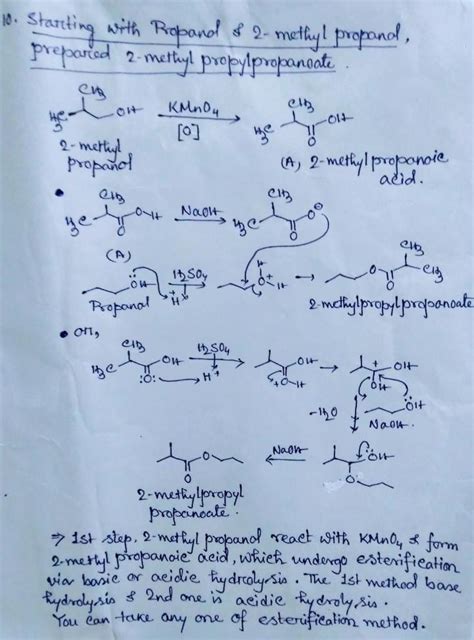 10. Starting with Propanol & 2-methyl propanol,
prepared 2-methyl propylpropanoate.
CH3
H3C OH KMnO4 [O] H3C CH3 OH O
2-methyl
propanol
(A) 2-methylpropanoic
acid.
CH3
H3C O H O NaOH H3C CH3 O⊖ O
(A)
ÖH H2SO4 H+ H O+ H O O CH3 CH3
Propanol
2-methylpropylpropanoate
• OR,
CH3
H3C OH :O: H2SO4 H+ OH +O-H + OH OH
-H2O ÖH
NaOH
O O NaOH ÖH O O
2-methylpropyl
propanoate.
⇒ 1st step, 2-methyl propanol react with KMnO4 & form
2-methyl propanoic acid, which undergo esterification
via basic or acidic hydrolysis. The 1st method base
hydrolysis & 2nd one is acidic hydrolysis.
You can take any one of esterification method.